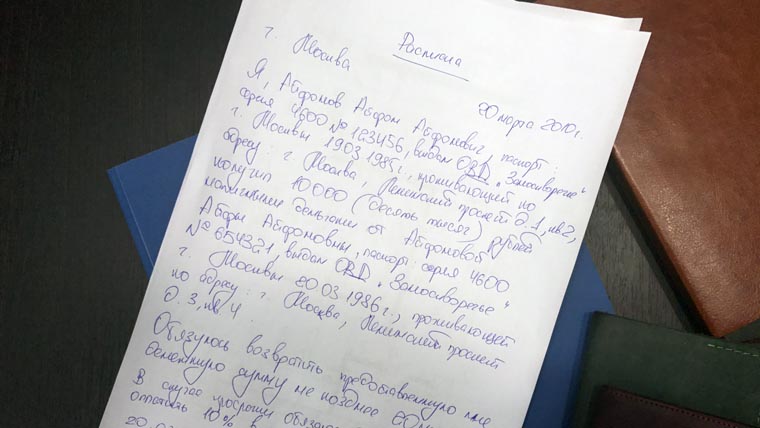 Расписка
г. Москва
20 марта 2010г.
Я, Абфомов Абфом Абфомович, паспорт:
серия 4600 № 123456, выдан ОВД "Замоскворечье"
г. Москвы 19.03.1985г., проживающий по
адресу: г. Москва, Ленинский проспект д. 1, кв 2,
получил 10 000 (десять тысяч) рублей
наличными деньгами от Абфомовой
Абфы Абфомовны, паспорт: серия 4600
№ 654321, выдан ОВД "Замоскворечье"
г. Москвы 20.03.1986г., проживающей
по адресу: г. Москва, Ленинский проспект
д. 3, кв. 4.
Обязуюсь возвратить предоставленную мне
денежную сумму не позднее
В случае просрочки
10% в
20